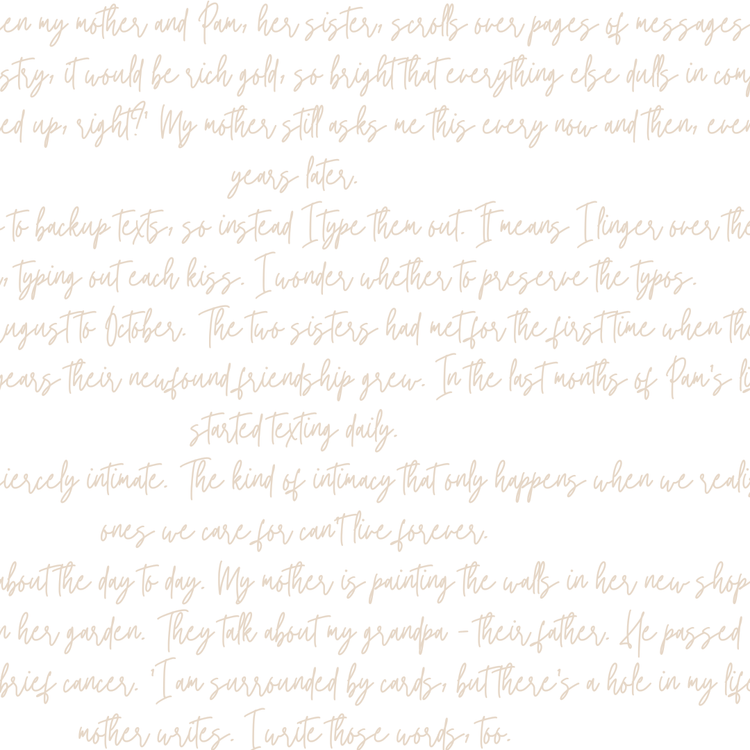 en my mother and Pam, her sister, scrolls over pages of messages
stry, it would be rich gold, so bright that everything else dulls in com
ed up, right?' My mother still asks me this every now and then, even
years later.
to backup texts, so instead I type them out. It means I linger over the
, typing out each kiss. I wonder whether to preserve the typos.
ugust to October. The two sisters had met for the first time when th
years their newfound friendship grew. In the last months of Pam's li
started texting daily.
iercely intimate. The kind of intimacy that only happens when we reali
ones we care for can't live forever.
about the day to day. My mother is painting the walls in her new shop
n her garden. They talk about my grandpa - their father. He passed
brief cancer. 'I am surrounded by cards, but there's a hole in my life
mother writes. I write those words, too.